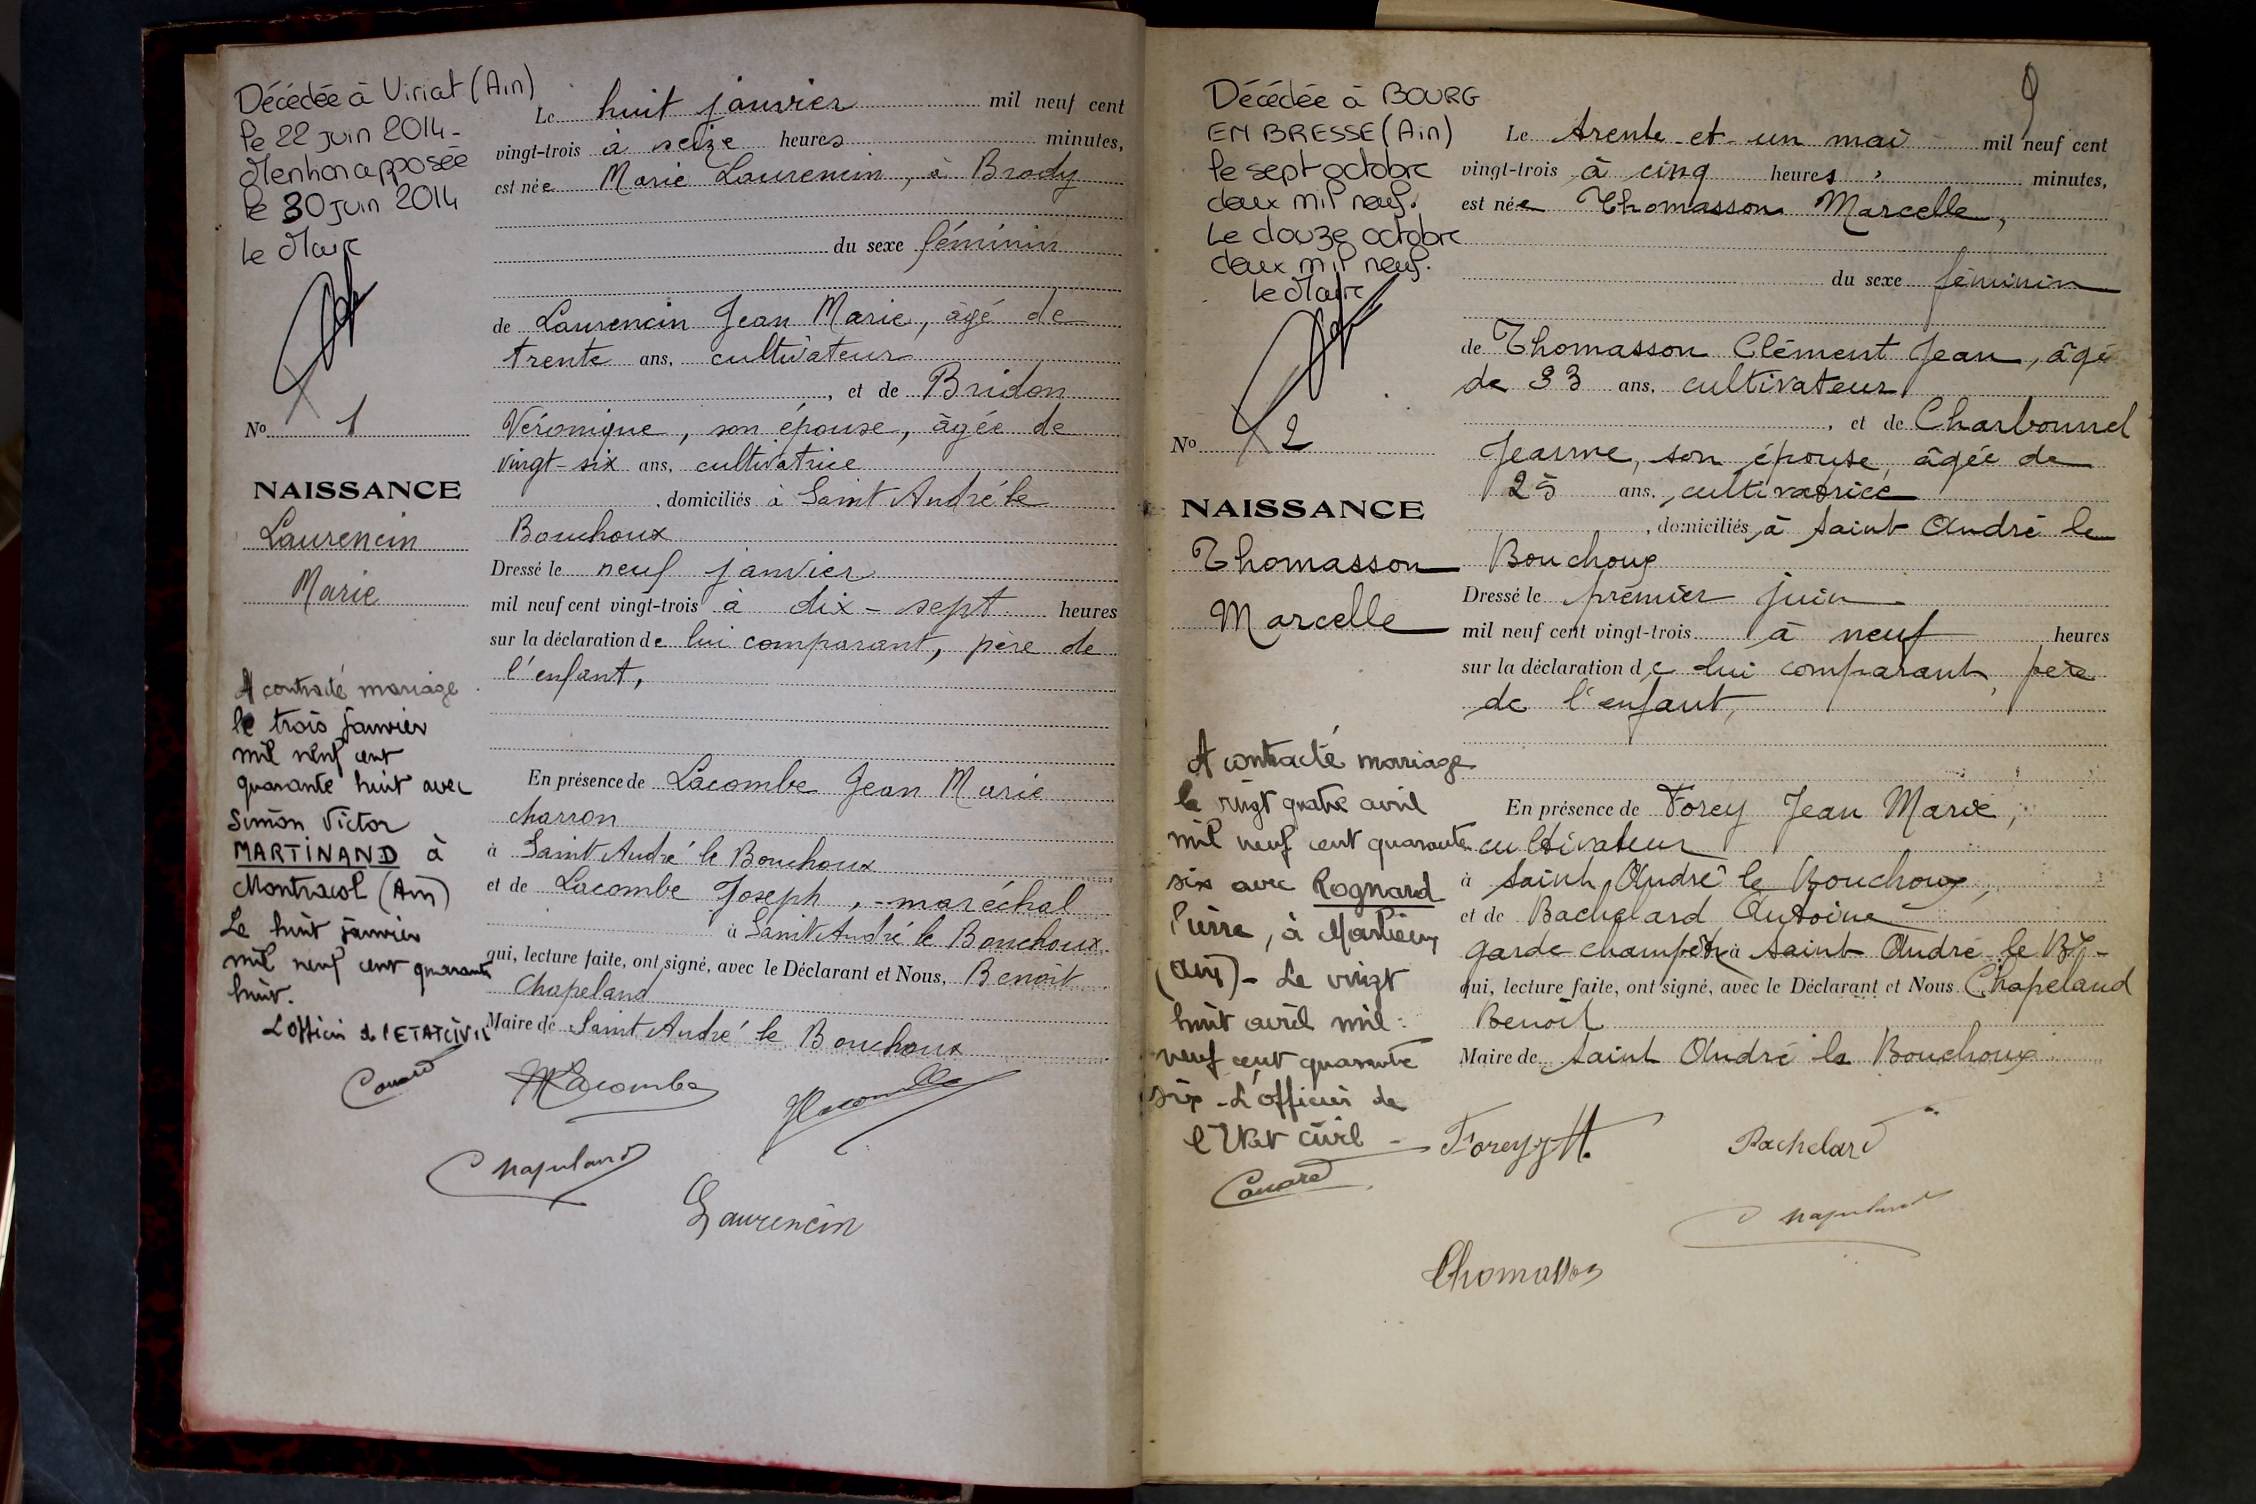 Décédée à Viriat (Ain)
le 22 juin 2014 -
Mention apposée
le 30 juin 2014
Le Maire
No 1
NAISSANCE
Laurencin
Marie
A contracté mariage
le trois janvier
mil neuf cent
quarante huit avec
Simon Victor
MARTINAND à
Montracol (Ain)
Le huit janvier
mil neuf cent quarante
huit.
L'officier de l'ETAT CIVIL
Canard
Le huit janvier mil neuf cent
vingt-trois à seize heures minutes,
est née Marie Laurencin, à Brody
du sexe féminin
de Laurencin Jean Marie, âgé de
trente ans, cultivateur
, et de Bridon
Véronique, son épouse, âgée de
vingt-six ans, cultivatrice
, domiciliés à Saint André le
Bouchoux
Dressé le neuf janvier
mil neuf cent vingt-trois à dix-sept heures
sur la déclaration de lui comparant, père de
l'enfant,
En présence de Lacombe Jean Marie
charron
à Saint André le Bouchoux
et de Lacombe Joseph, - maréchal
à Saint André le Bouchoux.
qui, lecture faite, ont signé, avec le Déclarant et Nous, Benoît
Chapeland
Maire de Saint André le Bouchoux
Lacombe
JLacombe
Chapeland
Laurencin
9
Décédée à BOURG
EN BRESSE (Ain)
le sept octobre
deux mil neuf.
Le douze octobre
deux mil neuf.
Le Maire
No 2
NAISSANCE
Thomasson
Marcelle
A contracté mariage
le vingt quatre avril
mil neuf cent quarante
six avec Rognard
Pierre, à
(Ain) - Le vingt
huit avril mil
neuf cent quarante
six - L'officier de
l'Etat civil -
Canard
Le trente et un mai mil neuf cent
vingt-trois à cinq heures, minutes,
est née Thomasson Marcelle,
du sexe féminin
de Thomasson Clément Jean, âgé
de 33 ans, cultivateur
, et de Charbonnel
Jeanne, son épouse, âgée de
25 ans, cultivatrice
, domiciliés à Saint André le
Bouchoux
Dressé le premier juin
mil neuf cent vingt-trois à neuf heures
sur la déclaration de lui comparant, père
de l'enfant,
En présence de Forey Jean Marie,
cultivateur
à Saint André le Bouchoux,
et de Bachelard Antoine
garde champêtre à Saint André le Bx -
qui, lecture faite, ont signé, avec le Déclarant et Nous Chapeland
Benoît
Maire de Saint André le Bouchoux
Forey
Bachelard
Chapeland
Thomasson